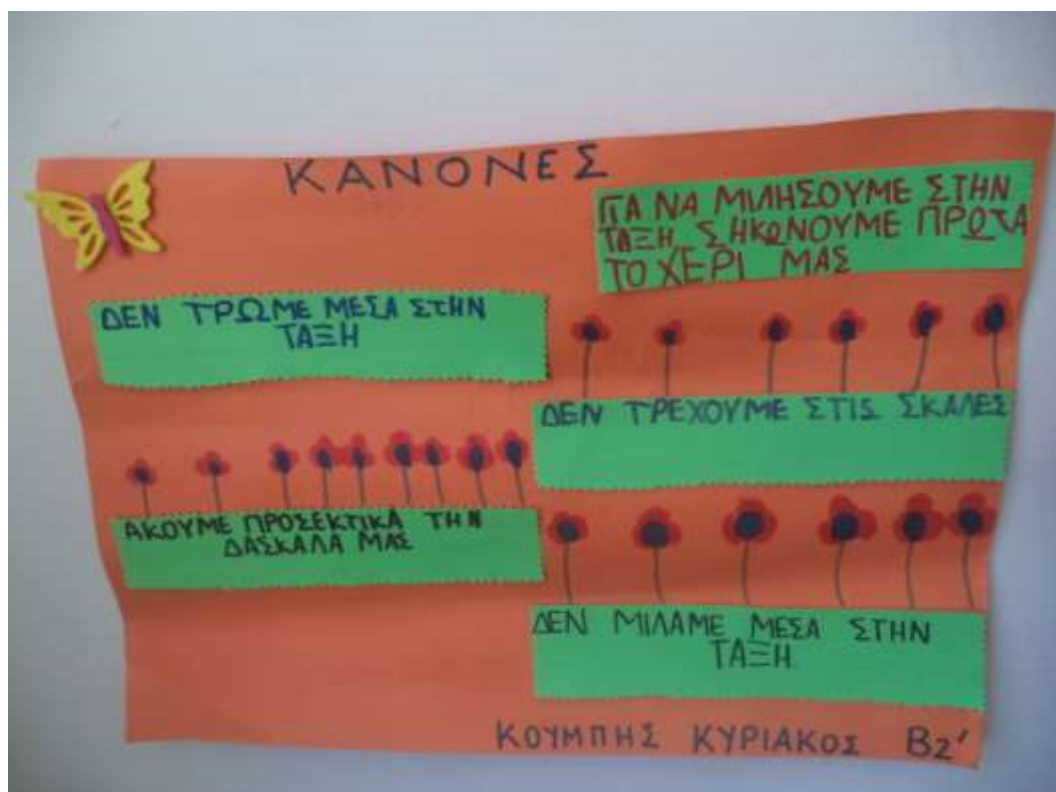 ΚΑΝΟΝΕΣ
ΓΙΑ ΝΑ ΜΙΛΗΣΟΥΜΕ ΣΤΗΝ
ΤΑΞΗ, ΣΗΚΩΝΟΥΜΕ ΠΡΩΤΑ
ΤΟ ΧΕΡΙ ΜΑΣ
ΔΕΝ ΤΡΩΜΕ ΜΕΣΑ ΣΤΗΝ
ΤΑΞΗ
ΔΕΝ ΤΡΕΧΟΥΜΕ ΣΤΙΣ ΣΚΑΛΕΣ
ΑΚΟΥΜΕ ΠΡΟΣΕΚΤΙΚΑ ΤΗΝ
ΔΑΣΚΑΛΑ ΜΑΣ
ΔΕΝ ΜΙΛΑΜΕ ΜΕΣΑ ΣΤΗΝ
ΤΑΞΗ
ΚΟΥΜΠΗΣ ΚΥΡΙΑΚΟΣ Β2'